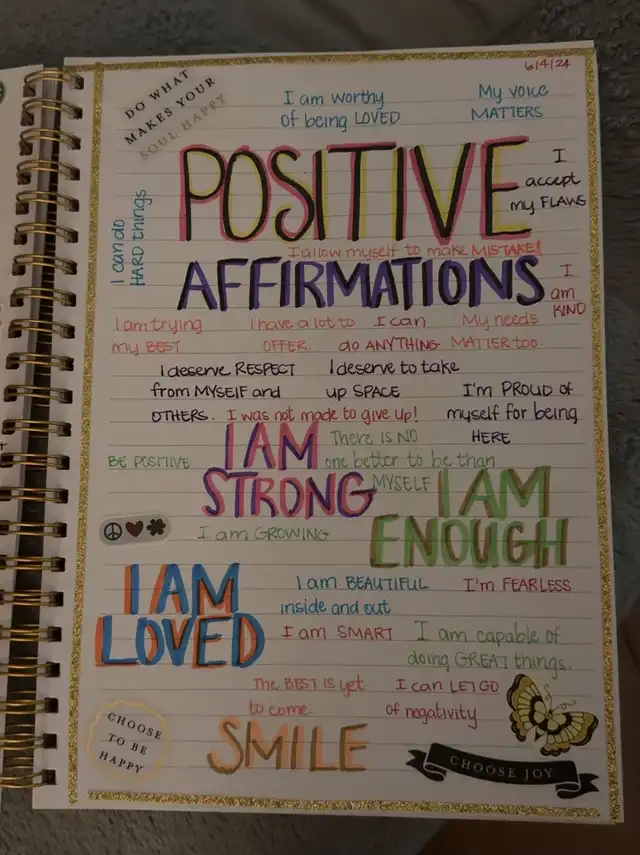 6/4/24
DO WHAT
MAKES YOUR
SOUL HAPPY
I am worthy
of being LOVED
My voice
MATTERS
POSITIVE
I
accept
my FLAWS
I can do
HARD things
I allow myself to make MISTAKE!
AFFIRMATIONS
I
am
KIND
I am trying
my BEST
I have a lot to
OFFER.
I can
do ANYTHING
My needs
MATTER too.
I deserve RESPECT
from MYSElF and
OTHERS.
I deserve to take
up SPACE
I'm PROUD of
myself for being
HERE
I was not made to give up!
I AM
STRONG
There IS NO
one better to be than
MYSELF
BE POSITIVE
I AM
ENOUGH
I am GROWING
I AM
LOVED
I am BEAUTIFUL
inside and out
I'm FEARLESS
I am SMART
I am capable of
doing GREAT things.
The BEST is yet
to come.
I can LET GO
of negativity
CHOOSE
TO BE
HAPPY
SMILE
CHOOSE JOY